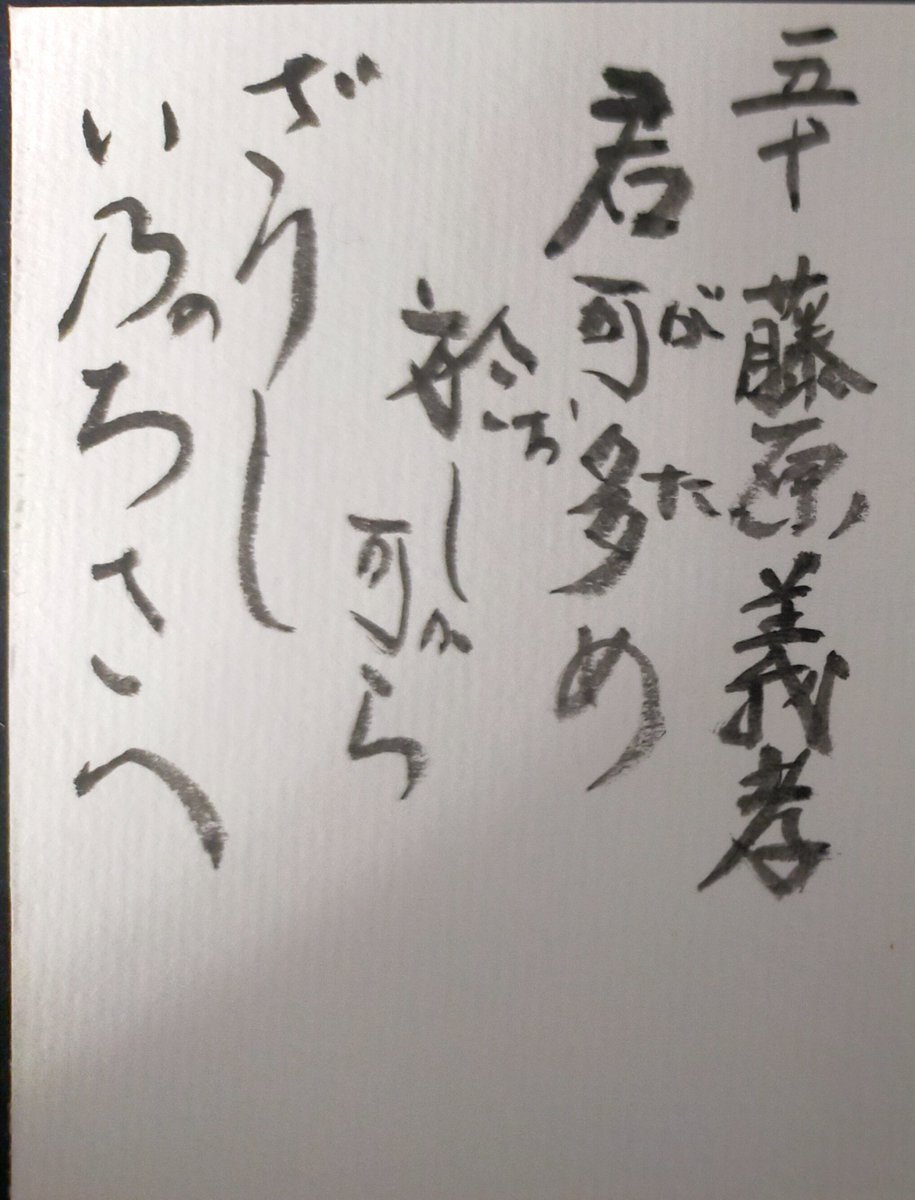 五十 藤原義孝
君可多め
がた
於し可ら
おか
ざりし
い乃ちさへ
の